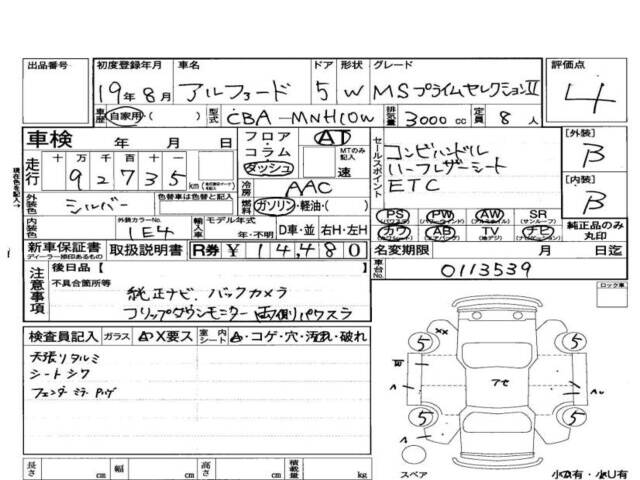 出品番号 初度登録年月 車名 ドア 形状 グレード 評価点
19年8月 アルファード 5 W MSプライムセレクションII 4
車歴 自家用・( ) 型式 CBA-MNH10W 排気量 3000cc 定員 8人
車検 年 月 日 フロア・コラム・ダッシュ AT MTのみ記入 速
現在色を記入→
走行 十 万 千 百 十 一 km
92735
冷房 AAC
外装色 シルバー 色替車は色替と記入 燃料 ガソリン・軽油・( )
内装色 外装カラーNo. 1E4 輸入車 モデル年式 年・不明 D車・並 右H・左H
セールスポイント
コンビハンドル
ハーフレザーシート
ETC
[外装] B
[内装] B
PS PW AW SR
カワ AB TV ナビ
純正品のみ丸印
新車保証書 取扱説明書 R券 ¥14,480 名変期限 月 日迄
ディーラー捺印あるもの
車台No. 0113539
注意事項 後日品【 】
不具合箇所等
純正ナビ、バックカメラ
フリップダウンモニター 両側パワスラ
ロック車
検査員記入 ガラス A・X要ス 室内シート A・コゲ・穴・汚れ・破れ
天張リタルミ
シートシワ
XX
5 5
5 5
スペア
小A有・小U有
長さ cm 幅 cm 高さ cm 積載量 kg